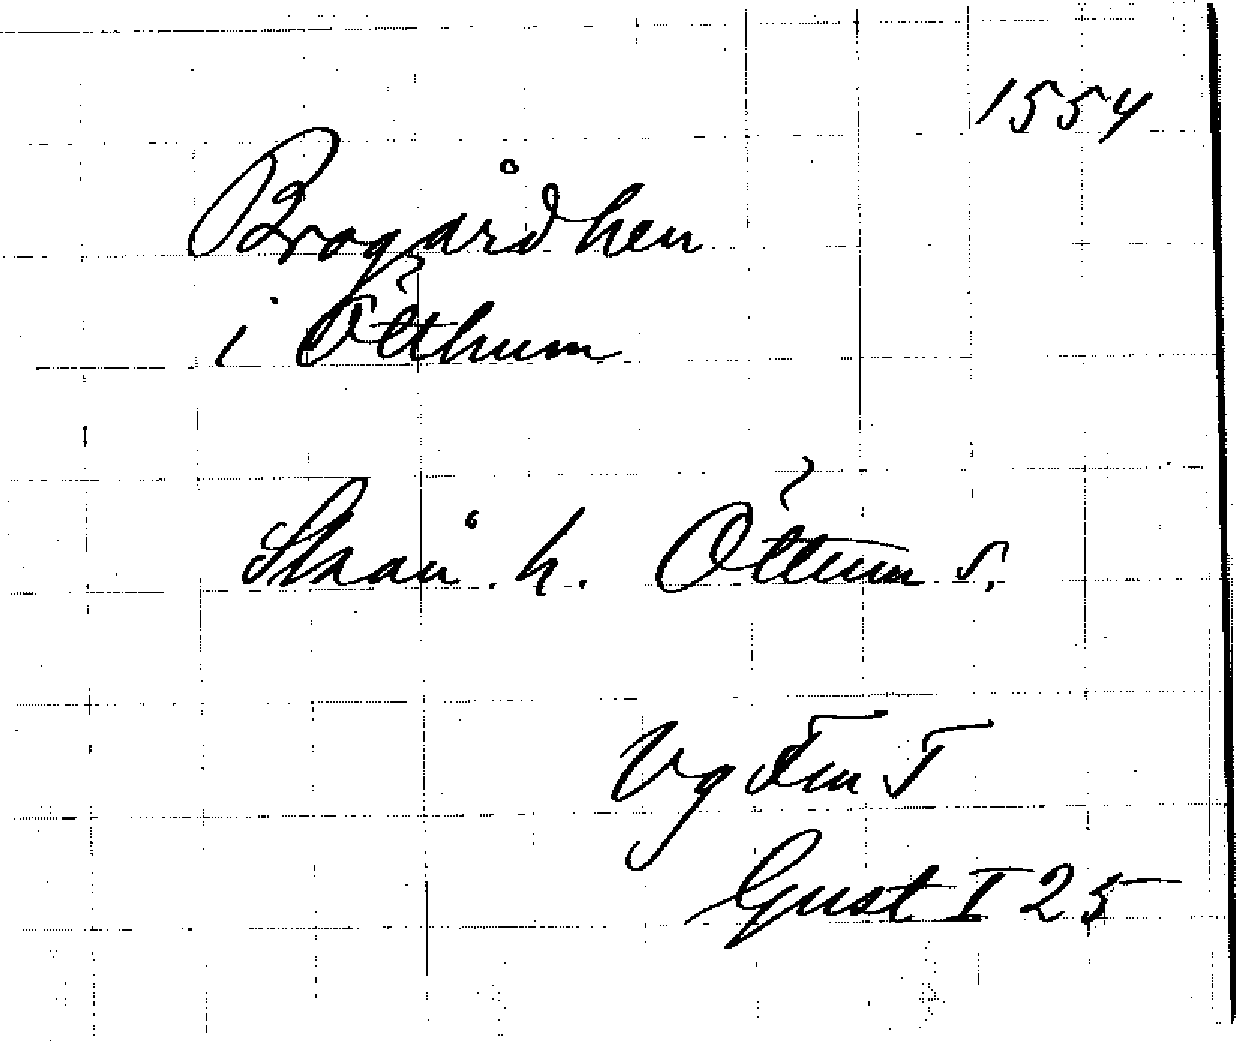 1554
Brogårdhen
i Ötthum
Skån. h. Öttum s.
Vg Fm T
Gust I 25